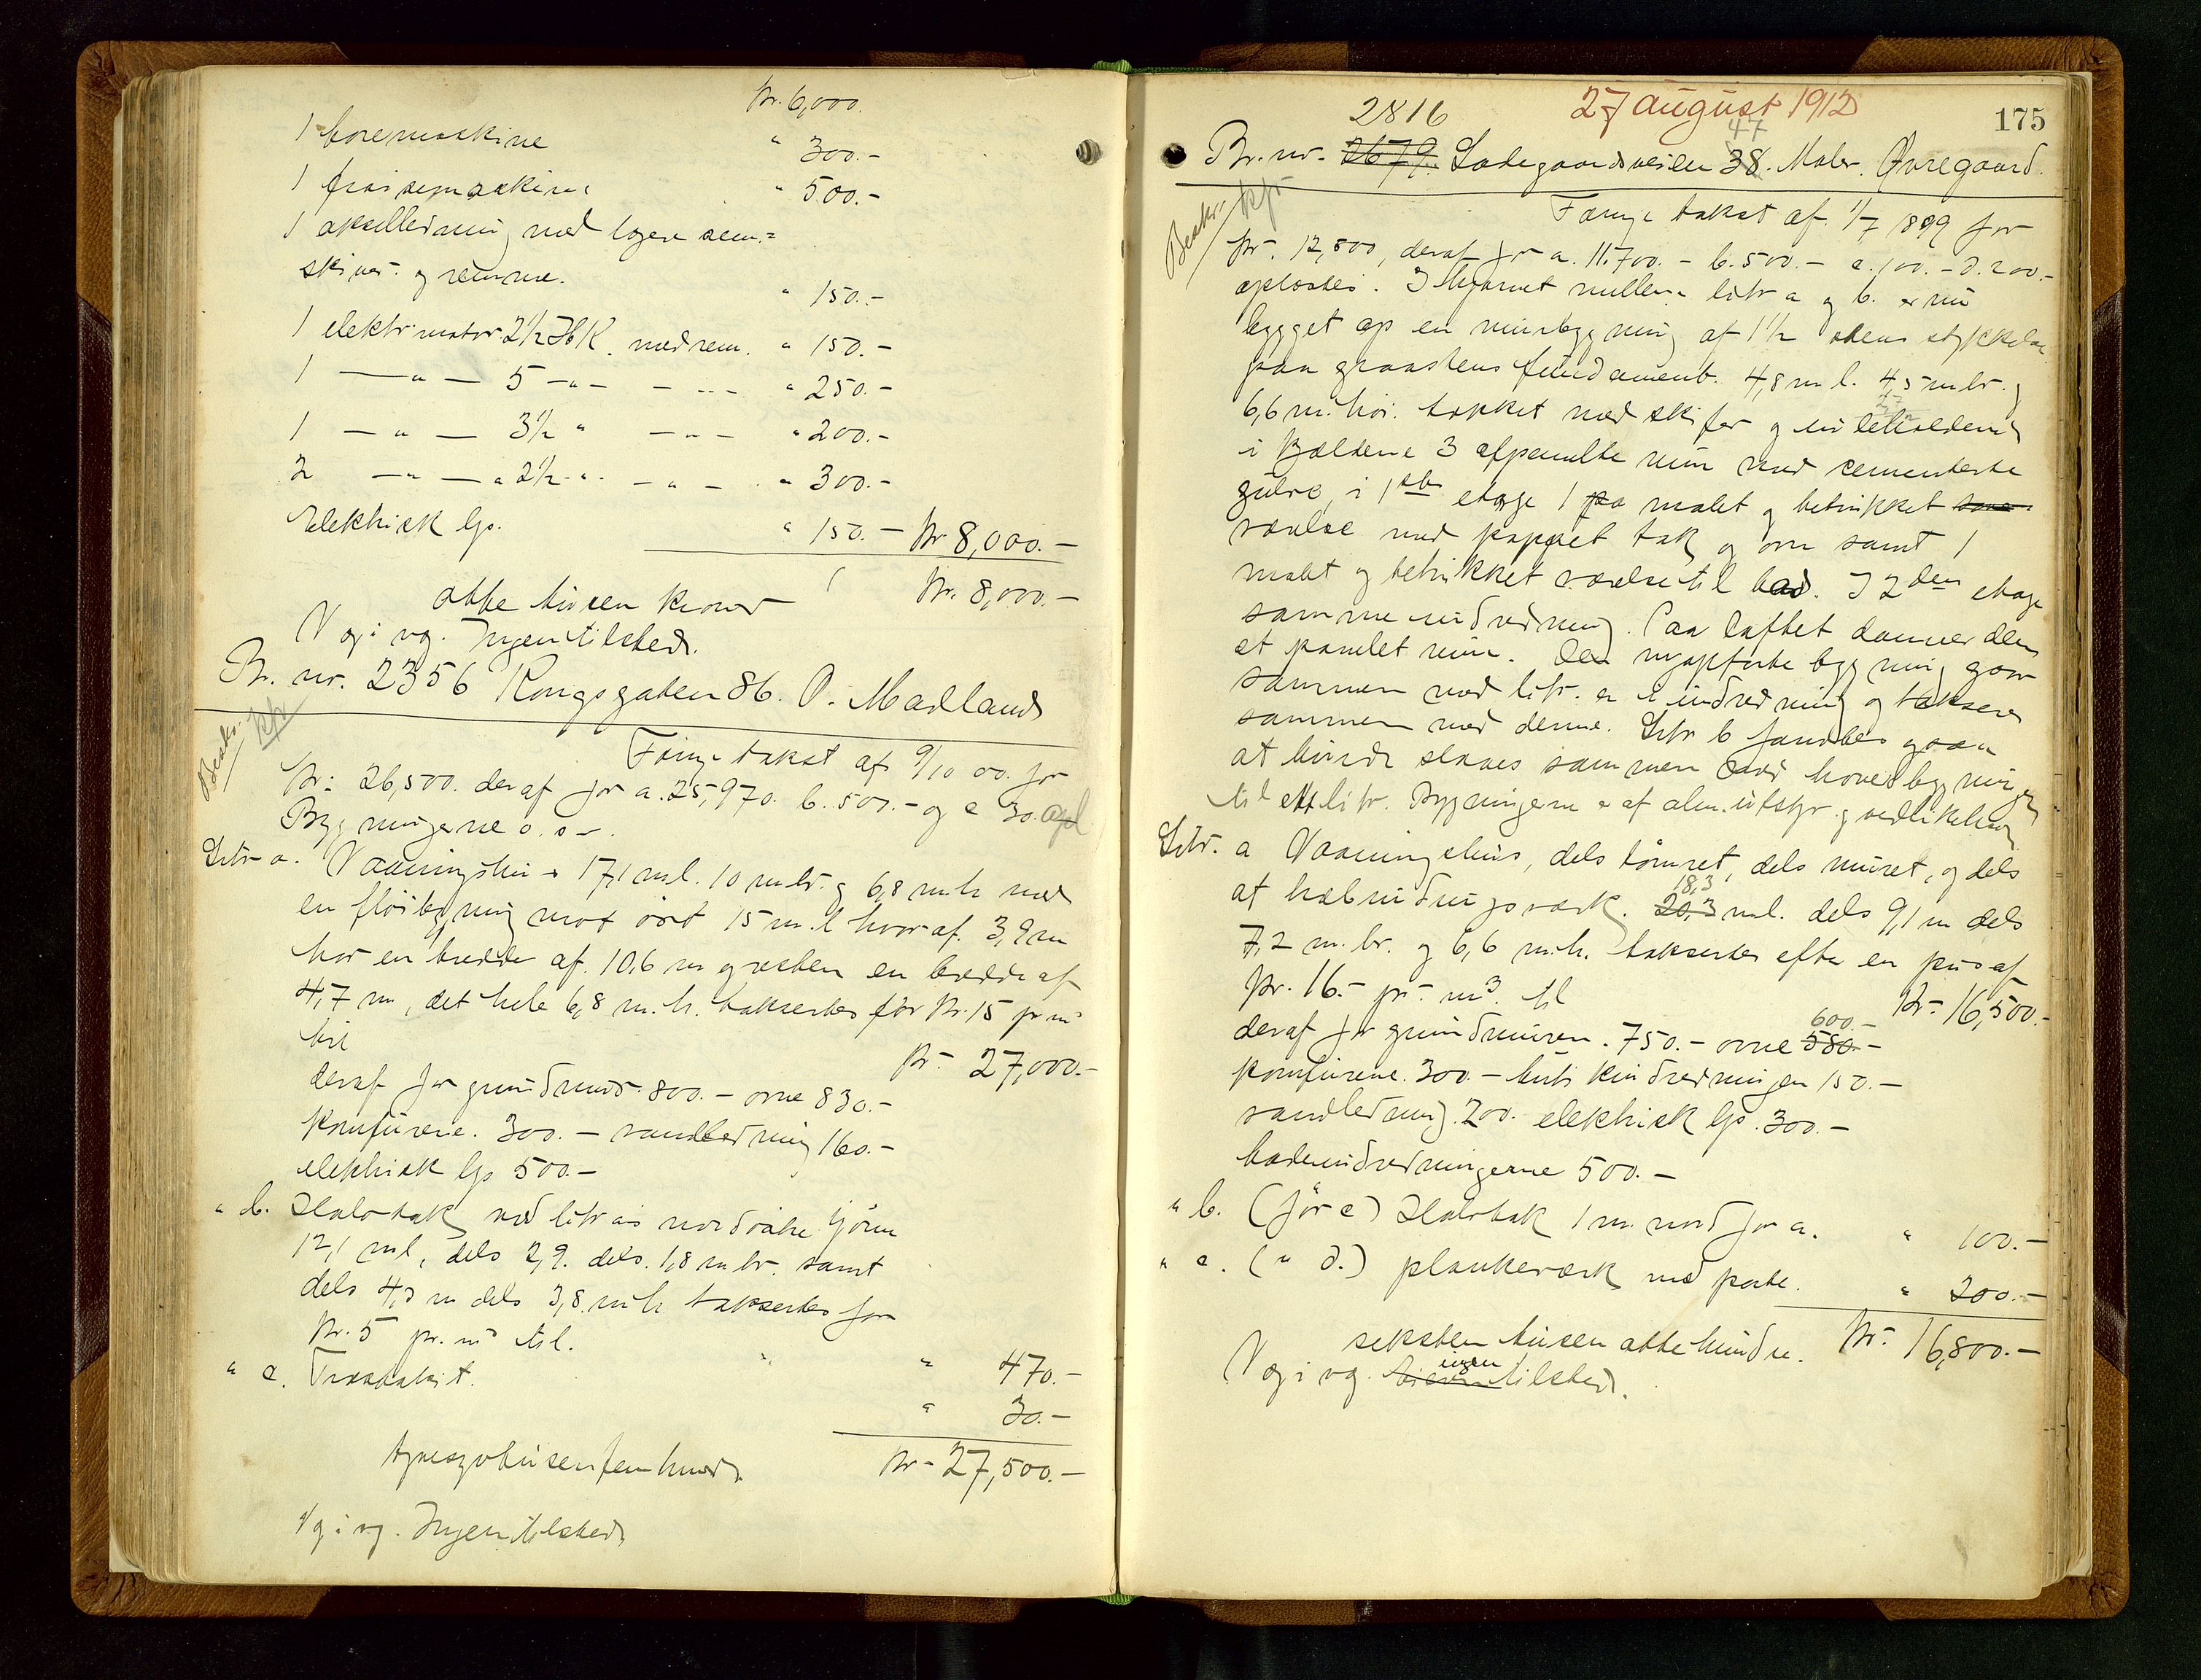 Kr. 6,000.
1 boremaskine " 300.-
1 fraisemaskine " 500.-
1 akselledning med lagere rem=
skiver og remme. " 150.-
1 elektr. motor 2½ HK. med rem. " 150.-
1 — " — 5 - " - - - - - " 250.-
1 — " — 3½ " — " — " 200.-
2 — " — " 2½ - " - " - " 300.-
Elektrisk lys. " 150.- Kr 8,000.-
otte tusen kroner Kr. 8,000.-
V og i vg. Ingen tilsted.
Br. nr. 2356 Kongsgaten 86. O. Madland
Beskr. kfr
Forrige takst af 9/10 00. for
Kr: 26,500. deraf for a. 25,970. b. 500.- og c 30. opl
Bygningerne o. s v.
Litr a. Vaaningshus 17,1 m l. 10 m br. og 6,8 m h med
en fløibygning mot øst 15 m. l hvoraf. 3,9 m
har en bredde af. 10,6 m og resten en bredde af
4,7 m, det hele 6,8 m. h. takseres for Kr. 15 pr m³
til Kr- 27,000.-
deraf for grundmur. 800.- ovne 830.-
komfurene. 300.- vandledning 160.-
elektrisk lys 500.-
" b. Halvtak ved litr as nordvestre hjørne
12,1 m l, dels 2,9. dels. 1,8 m br. samt
dels 4,3 m dels 3,8. m h takseres for
Kr. 5 pr. m³ til. " 470.-
" c. Træstakit. " 30.-
tyvesyvtusenfemhund. Kr- 27,500.-
V og i vg. Ingen tilsted
2816 27 august 1912 175
47
Br. nr. 2679. Ladegaardsveien 38. Maler. Øvregaard.
Beskr. kfr
Forrige takst af. 1/7 1899 for
Kr. 12,500, deraf for a. 11.700.- b. 500.- c. 100.- d. 200.-
oplæstes. I hjørnet mellem litr a og b. er nu
bygget op en murbygning af 1½ stens tykkelse
paa graastens fundament. 4,8 m l. 4,5 m br. og
6,6 m. høi. tækket med skifer og indeholdende
i Kælderen 3 afpanelte rum med cementerte
gulve, i 1ste etage 1 pa malet og betrukket
værelse med pappet tak og ovn samt 1
malt og betrukket værelse til bad. I 2den etage
samme indredning. Paa loftet dannes der
et panelet rum. Den nyopførte bygning gaar
sammen med litr. a i indredning og takseres
sammen med denne. Litr b fandtes ogsaa
at burde slaaes sammen med hovedbygningen
til ett litr. Bygningerne er af alm. utstyr og vedlikehold
Litr. a Vaaningshus, dels tømret, dels muret, og dels
18,3
at halvbindingsværk. 20,3 m l. dels 9,1 m dels
7,2 m. br. og 6,6 m. h. takseres efter en pris af
Kr. 16.- pr.- m³. til Kr- 16,500.-
600.-
deraf for grundmuren. 750.- ovne 580.-
komfurene. 300.- butikindredningen 150.-
vandledning. 200. elektrisk lys. 300.-
badeindredningerne 500.-
" b. (før c) Halvtak 1 m. nord for a. " 100.-
" c. ( " d.) plankeværk med porte. " 200.-
seksten tusen otte hundre. Kr- 16,800.-
ingen
V og i vg. tilsted.